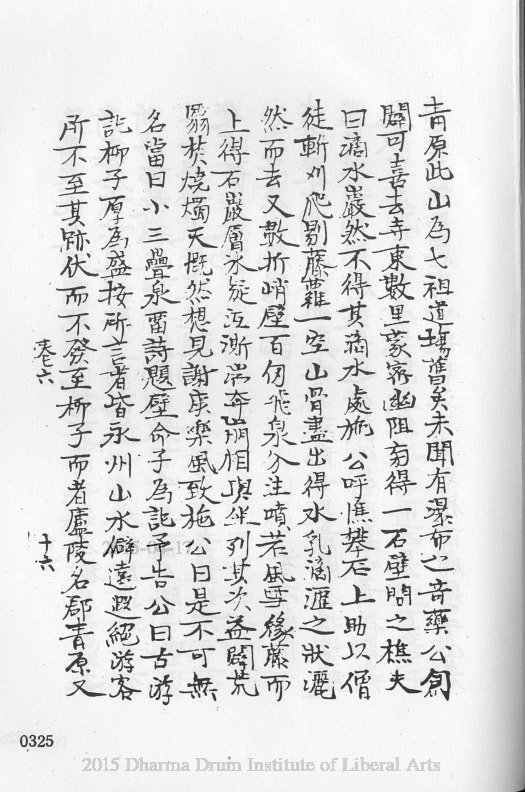 青原此山為七祖道場舊矣未聞有瀑布之奇藥公創
闢可喜去寺東數里蒙密幽阻剪得一石壁問之樵夫
曰滴水巖然不得其滴水處施公呼樵攀石上助以僧
徒斬刈爬剔藤蘿一空山骨盡出得水乳滴涯之狀灑
然而去又數折峭壁百仞飛泉分注噴若風雪緣藤而
上得石巖層水旋沍澌湍奔崩相與坐列其次益闢荒
翳焚燒燭天慨然想見謝康樂風致施公曰是不可無
名當曰小三疊泉留詩題壁命予為記予告公曰古游
記柳子厚為盛按所言者皆永州山水僻遠遐絕游客
所不至其跡伏而不發至柳子而者廬陵名郡青原又
卷六
十六
0325
2015 Dharma Drum Institute of Liberal Arts